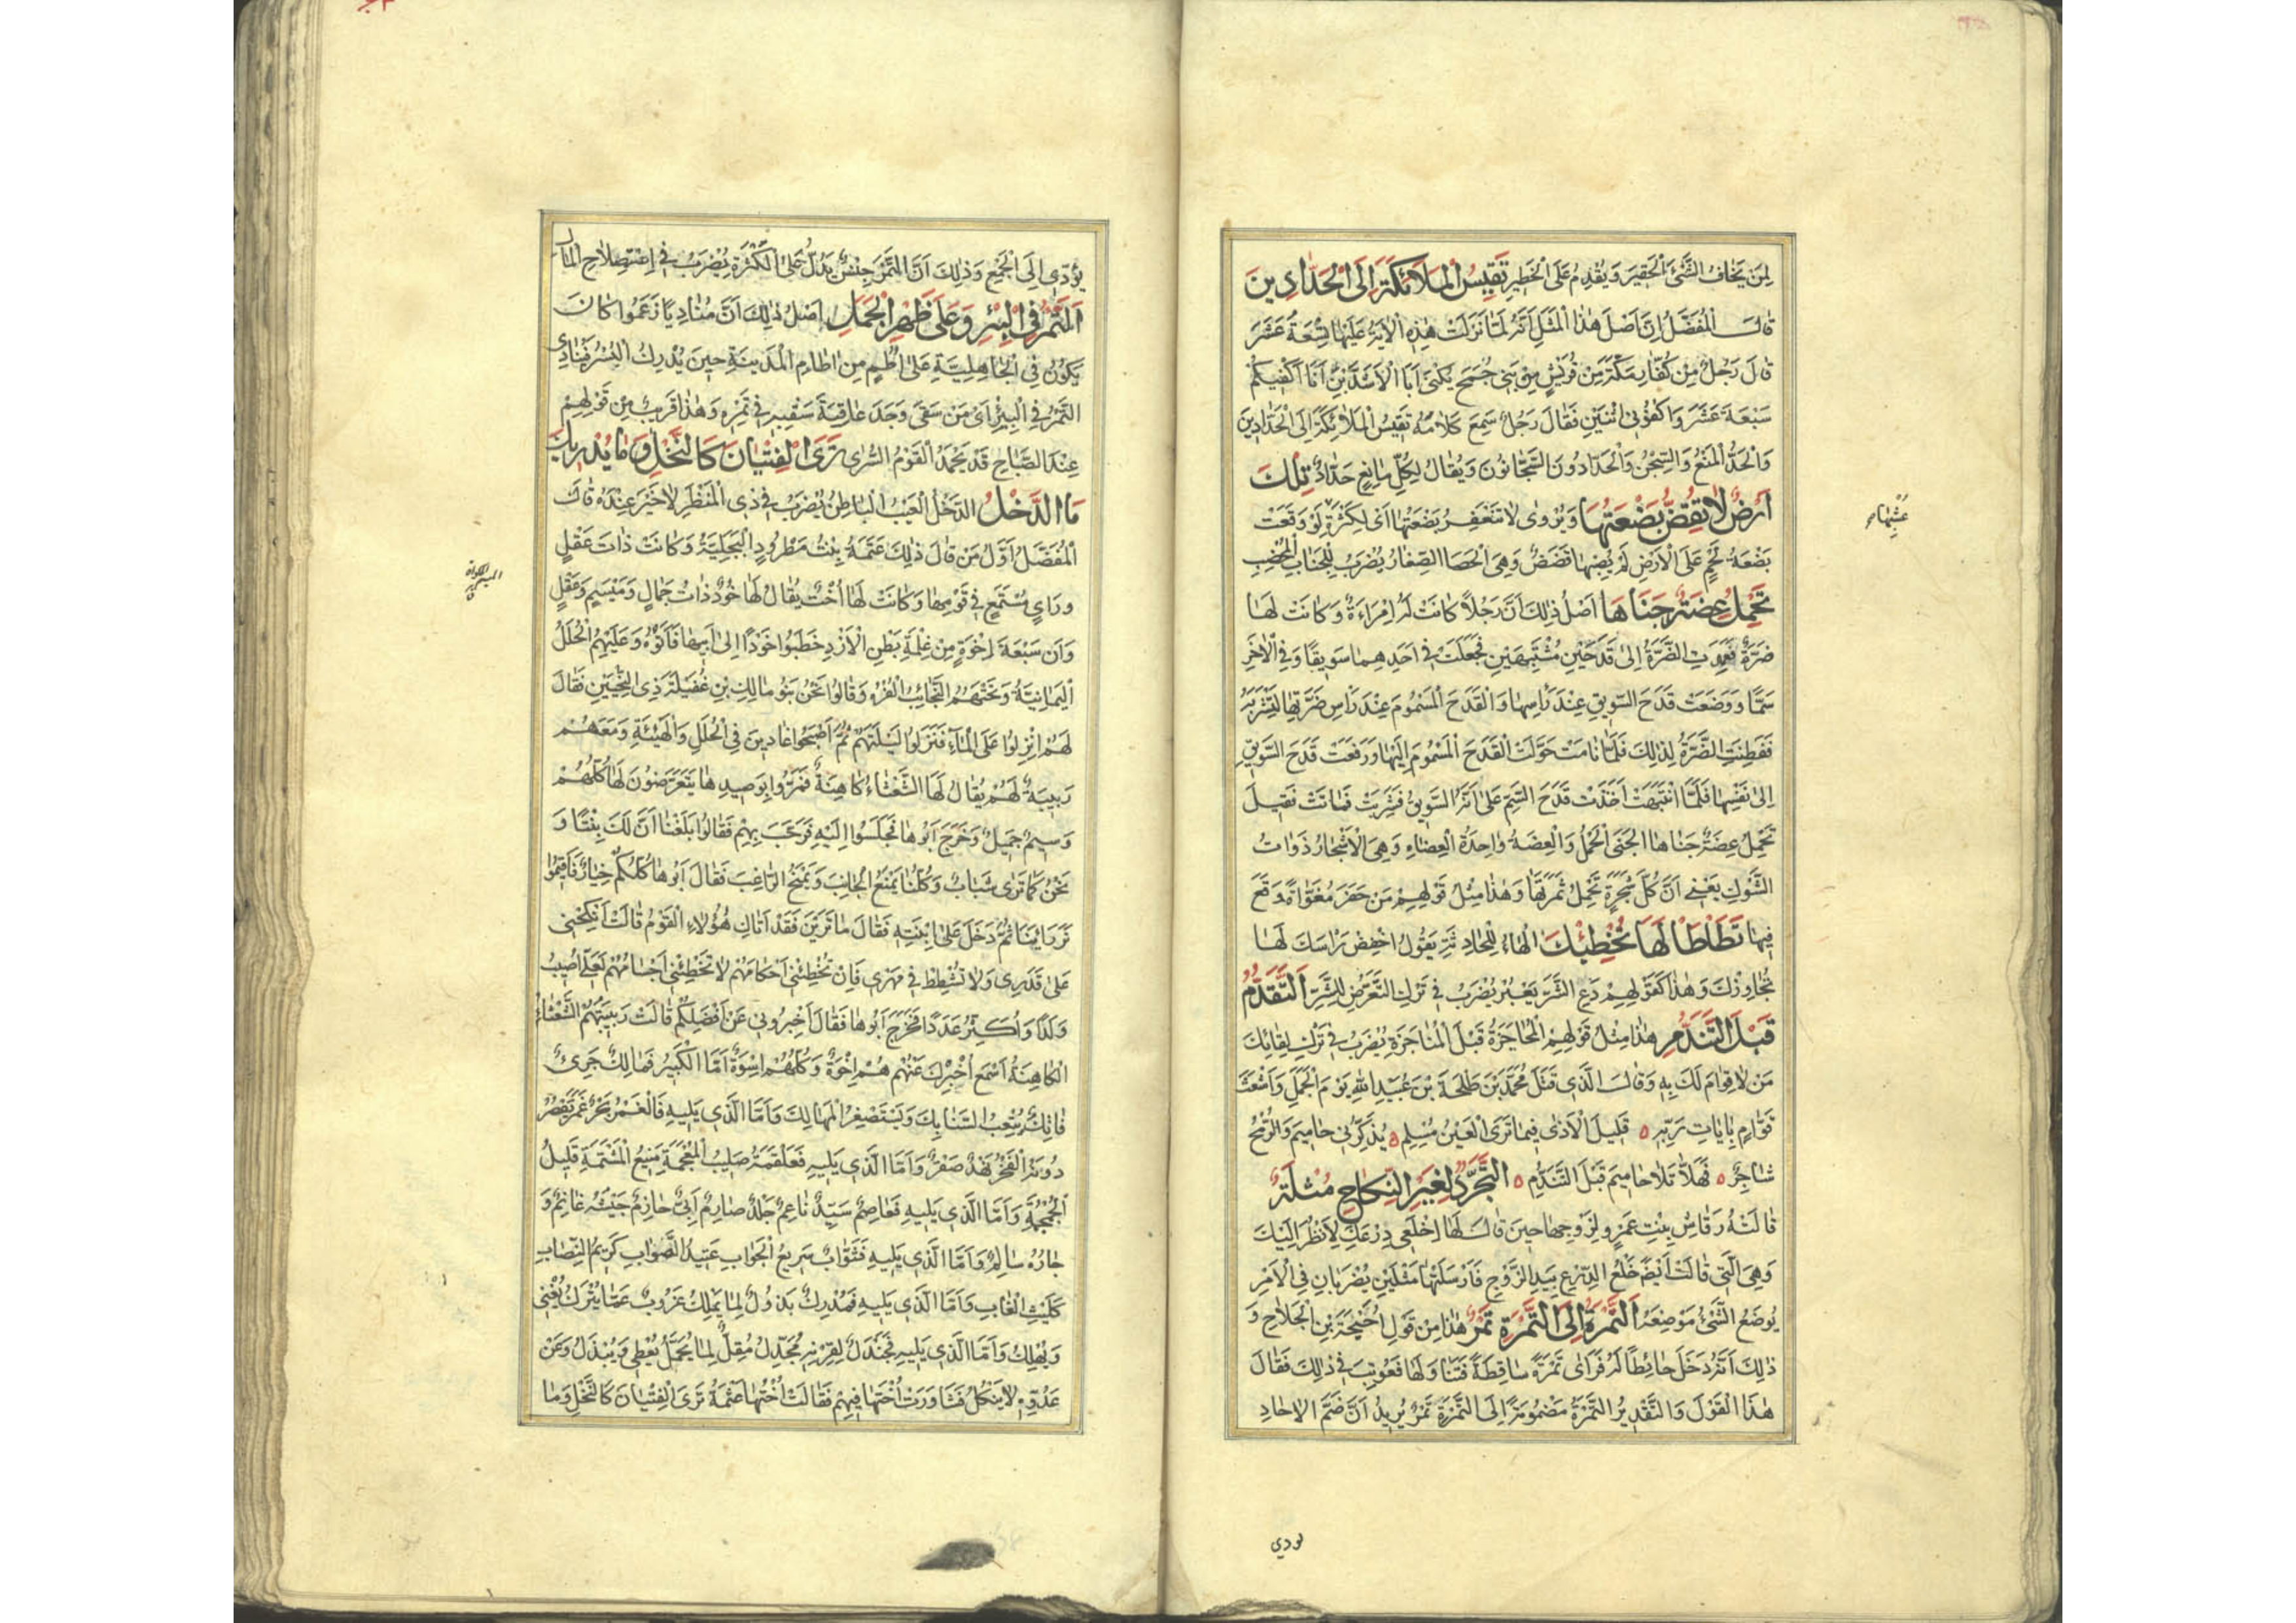 لِمَنْ يَخَافُ الشَّئَ الْحَقِيرَ وَيُقْدِمُ عَلَى الْخَطِيرِ تَقِيسُ الْمَلَائِكَةَ إِلَى الْحَدَّادِينَ
قَالَ الْمُفَضَّلُ اِنَّ اَصْلَ هٰذَا الْمَثَلِ اَنَّهُ لَمَّا نَزَلَتْ هٰذِهِ الْاٰيَةُ عَلَيْهَا تِسْعَةَ عَشَرَ
قَالَ رَجُلٌ مِنْ كُفَّارِ مَكَّةَ مِنْ قُرَيْشٍ مِنْ بَنِي جُمَحَ يُكْنَى اَبَا الْاَشَدَّيْنِ اَنَا اَكْفِيكُمْ
سَبْعَةَ عَشَرَ وَاكْفُونِي اثْنَيْنِ فَقَالَ رَجُلٌ سَمِعَ كَلَامَهُ تَقِيسُ الْمَلَائِكَةَ اِلَى الْحَدَّادِينَ
وَالْحَدُّ الْمَنْعُ وَالسِّجْنُ وَالْحَدَّادُونَ السَّجَّانُونَ وَيُقَالُ لِكُلِّ مَانِعٍ حَدَّادٌ تِلْكَ
اَرْضٌ لَا تُقِضُّ بَضْعَتُهَا وَيُرْوَى لَا تَنْعَفِرُ بَضْعَتُهَا اَيْ لِكَثْرَةِ لَوْ وَقَعَتْ
بَضْعَةُ لَحْمٍ عَلَى الْاَرْضِ لَمْ يُصِبْهَا قَضَضٌ وَهِيَ الْحَصَا الصِّغَارُ يُضْرَبُ لِلْجَنَابِ الْمُخْصِبِ
تَحْمِلُ عِضَةٌ جَنَاهَا اَصْلُ ذٰلِكَ اَنَّ رَجُلًا كَانَتْ لَهُ اِمْرَاَةٌ وَكَانَتْ لَهَا
ضَرَّةٌ فَعَمِدَتِ الضَّرَّةُ اِلَى قَدَحَيْنِ مُشْتَبِهَيْنِ فَجَعَلَتْ فِي اَحَدِهِمَا سَوِيقًا وَفِي الْاٰخَرِ
سَمًّا وَوَضَعَتْ قَدَحَ السَّوِيقِ عِنْدَ رَأْسِهَا وَالْقَدَحَ الْمَسْمُومَ عِنْدَ رَأْسِ ضَرَّتِهَا لِتَشْرَبَهُ
فَفَطِنَتِ الضَّرَّةُ لِذٰلِكَ فَلَمَّا نَامَتْ حَوَّلَتْ الْقَدَحَ الْمَسْمُومَ اِلَيْهَا وَرَفَعَتْ قَدَحَ السَّوِيقِ
اِلَى نَفْسِهَا فَلَمَّا انْتَبَهَتْ اَخَذَتْ قَدَحَ السَّمِّ عَلَى اَنَّهُ السَّوِيقُ فَشَرِبَتْ فَمَاتَتْ فَقِيلَ
تَحْمِلُ عِضَةٌ جَنَاهَا الْجَنَى الْحَمْلُ وَالْعِضَةُ وَاحِدَةُ الْعِضَاهِ وَهِيَ الْاَشْجَارُ ذَوَاتُ
الشَّوْكِ يَعْنِي اَنَّ كُلَّ شَجَرَةٍ تَحْمِلُ ثَمَرَتَهَا وَهٰذَا مِثْلُ قَوْلِهِمْ مَنْ حَفَرَ مُغَوَّاةً وَقَعَ
فِيهَا تَطَأْطَأْ لَهَا تُخْطِئْكَ الْهَاءُ لِلْحَادِثَةِ يَقُولُ اخْفِضْ رَأْسَكَ لَهَا
تُجَاوِزْكَ وَهٰذَا كَقَوْلِهِمْ دَعِ الشَّرَّ يَعْبُرْ يُضْرَبُ فِي تَرْكِ التَّعَرُّضِ لِلشَّرِّ اَلتَّقَدُّمُ
قَبْلَ التَّنَدُّمِ هٰذَا مِثْلُ قَوْلِهِمُ الْمُحَاجَزَةُ قَبْلَ الْمُنَاجَزَةِ يُضْرَبُ فِي تَرْكِ لِقَائِكَ
مَنْ لَا قِوَامَ لَكَ بِهِ وَقَالَ الَّذِي قَتَلَ مُحَمَّدَ بْنَ طَلْحَةَ بْنِ عُبَيْدِ اللهِ يَوْمَ الْجَمَلِ وَاَشْعَثَ
قَوَّامٍ بِاٰيَاتِ رَبِّهِ ۵ قَلِيلَ الْاَذَى فِيمَا تَرَى الْعَيْنُ مُسْلِمِ ۵ يُذَكِّرُنِي حَامِيمَ وَالرُّمْحُ
شَاجِرٌ ۵ فَهَلَّا تَلَا حَامِيمَ قَبْلَ التَّنَدُّمِ ۵ التَّجَرُّدُ لِغَيْرِ النِّكَاحِ مُثْلَةٌ
قَالَتْهُ رَقَاشِ بِنْتِ عَمْرٍو لِزَوْجِهَا حِينَ قَالَ لَهَا اِخْلَعِي دِرْعَكِ لِاَنْظُرَ اِلَيْكِ
وَهِيَ الَّتِي قَالَتْ اَيْضًا خَلْعُ الدِّرْعِ بِيَدِ الزَّوْجِ فَاَرْسَلَتْهَا مَثَلَيْنِ يُضْرَبَانِ فِي الْاَمْرِ
يُوضَعُ الشَّئُ مَوْضِعَهُ اَلتَّمْرَةُ اِلَى التَّمْرَةِ تَمْرٌ هٰذَا مِنْ قَوْلِ اُحَيْحَةَ بْنِ الْجُلَاحِ وَ
ذٰلِكَ اَنَّهُ دَخَلَ حَائِطًا لَهُ فَرَاَى تَمْرَةً سَاقِطَةً فَتَنَاوَلَهَا فَعُوتِبَ فِي ذٰلِكَ فَقَالَ
هٰذَا الْقَوْلَ وَالتَّقْدِيرُ التَّمْرَةُ مَضْمُومَةً اِلَى التَّمْرَةِ تَمْرٌ يُرِيدُ اَنَّ ضَمَّ الْاٰحَادِ
يُؤَدِّي اِلَى الْجَمِيعِ وَذٰلِكَ اَنَّ التَّمْرَ جِنْسٌ يَدُلُّ عَلَى الْكَثْرَةِ يُضْرَبُ فِي اِسْتِصْلَاحِ الْمَالِ
اَلتَّمْرُ فِي الْبِئْرِ وَعَلَى ظَهْرِ الْجَمَلِ اَصْلُ ذٰلِكَ اَنَّ مُنَادِيًا زَعَمُوا كَانَ
يَكُونُ فِي الْجَاهِلِيَّةِ عَلَى اُطُمٍ مِنْ اٰطَامِ الْمَدِينَةِ حِينَ يُدْرِكُ الْبُسْرُ فَيُنَادِي
التَّمْرُ فِي الْبِئْرِ اَيْ مَنْ سَقَى وَجَدَ عَاقِبَةَ سَقْيِهِ فِي تَمْرِهِ وَهٰذَا قَرِيبٌ مِنْ قَوْلِهِمْ
عِنْدَ الصَّبَاحِ قَدْ يَحْمَدُ الْقَوْمُ السُّرَى تَرَى الْفِتْيَانَ كَالنَّخْلِ وَمَا يُدْرِيكَ
مَا الدَّخْلُ الدَّخْلُ الْعَيْبُ الْبَاطِنُ يُضْرَبُ فِي ذِي الْمَنْظَرِ لَا خَيْرَ عِنْدَهُ قَالَ
الْمُفَضَّلُ اَوَّلُ مَنْ قَالَ ذٰلِكَ عَثْمَةُ بِنْتُ مَطْرُودٍ الْبَجَلِيَّةُ وَكَانَتْ ذَاتَ عَقْلٍ
وَرَايٍ مُسْتَمَعٍ فِي قَوْمِهَا وَكَانَتْ لَهَا اُخْتٌ يُقَالُ لَهَا خَوْدٌ ذَاتُ جَمَالٍ وَمَيْسَمٍ وَعَقْلٍ
وَاَنَّ سَبْعَةَ اِخْوَةٍ مِنْ غِلْمَةِ بَطْنِ الْاَزْدِ خَطَبُوا خَوْدًا اِلَى اَبِيهَا فَاَتَوْهُ وَعَلَيْهِمُ الْحُلَلُ
الْيَمَانِيَّةُ وَتَحْتَهُمُ النَّجَائِبُ الْفُرْهُ وَقَالُوا نَحْنُ بَنُو مَالِكِ بْنِ غُفَيْلَةَ ذِي النِّحْيَيْنِ فَقَالَ
لَهُمْ انْزِلُوا عَلَى الْمَاءِ فَنَزَلُوا لَيْلَتَهُمْ ثُمَّ اَصْبَحُوا غَادِينَ فِي الْحُلَلِ وَالْهَيْئَةِ وَمَعَهُمْ
رَبِيبَةٌ لَهُمْ يُقَالُ لَهَا الشَّعْثَاءُ كَاهِنَةٌ فَمَرُّوا بِوَصِيدِهَا يَتَعَرَّضُونَ لَهَا كُلُّهُمْ
وَسِيمٌ جَمِيلٌ وَخَرَجَ اَبُوهَا فَجَلَسُوا اِلَيْهِ فَرَحَّبَ بِهِمْ فَقَالُوا بَلَغَنَا اَنَّ لَكَ بِنْتًا وَ
نَحْنُ كَمَا تَرَى شَبَابٌ وَكُلُّنَا يَمْنَعُ الْجَانِبَ وَيَمْنَحُ الرَّاغِبَ فَقَالَ اَبُوهَا كُلُّكُمْ خِيَارٌ فَاَقِيمُوا
نَرَ رَايَنَا ثُمَّ دَخَلَ عَلَى ابْنَتِهِ فَقَالَ مَا تَرَيْنَ فَقَدْ اَتَاكِ هٰؤُلَاءِ الْقَوْمُ قَالَتْ اَنْكِحْنِي
عَلَى قَدَرِي وَلَا تُشْطِطْ فِي مَهْرِي فَاِنْ تُخْطِئْنِي اَحْلَامُهُمْ لَا تُخْطِئْنِي اَجْسَامُهُمْ لَعَلِّي اُصِيبُ
وَلَدًا وَاُكْثِرُ عَدَدًا فَخَرَجَ اَبُوهَا فَقَالَ اَخْبِرُونِي عَنْ اَفْضَلِكُمْ قَالَتْ رَبِيبَتُهُمُ الشَّعْثَاءُ
الْكَاهِنَةُ اسْمَعْ اُخْبِرْكَ عَنْهُمْ هُمْ اِخْوَةٌ وَكُلُّهُمْ اِسْوَةٌ اَمَّا الْكَبِيرُ فَمَالِكٌ جَرِئٌ
فَاتِكٌ يُتْعِبُ السَّنَابِكَ وَيَسْتَصْغِرُ الْمَهَالِكَ وَاَمَّا الَّذِي يَلِيهِ فَالْغَمْرُ بَحْرٌ غَمْرٌ يَقْصُرُ
دُونَهُ الْفَخْرُ نَهْدٌ صَقْرٌ وَاَمَّا الَّذِي يَلِيهِ فَعَلْقَمَةُ صَلِيبُ الْمَعْجَمَةِ مَنِيعُ الْمَشْتَمَةِ قَلِيلُ
الْجَمْجَمَةِ وَاَمَّا الَّذِي يَلِيهِ فَعَاصِمٌ سَيِّدٌ نَاعِمٌ جَلْدٌ صَارِمٌ اَبِيٌّ حَازِمٌ جَيْشُهُ غَانِمٌ وَ
جَارُهُ سَالِمٌ وَاَمَّا الَّذِي يَلِيهِ فَثَوَابٌ سَرِيعُ الْجَوَابِ عَتِيدُ الصَّوَابِ كَرِيمُ النِّصَابِ
كَلَيْثِ الْغَابِ وَاَمَّا الَّذِي يَلِيهِ فَمُدْرِكٌ بَذُولٌ لِمَا يَمْلِكُ عَزُوبٌ عَمَّا يَتْرُكُ يُفْنِي
وَيُهْلِكُ وَاَمَّا الَّذِي يَلِيهِ فَجَنْدَلٌ لِقِرْنِهِ مُجَدِّلٌ مُقِلٌّ لِمَا يُحَمَّلُ يُعْطِي وَيَبْذُلُ وَعَنْ
عَدُوِّهِ لَا يَنْكُلُ فَشَاوَرَتْ اُخْتَهَا فِيهِمْ فَقَالَتْ اُخْتُهَا عَثْمَةُ تَرَى الْفِتْيَانَ كَالنَّخْلِ وَمَا